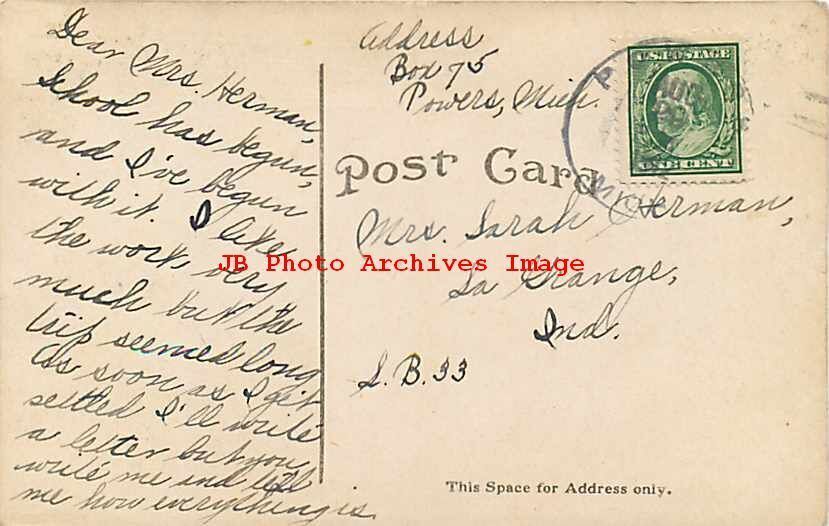 Dear Mrs. Herman,
School has begun,
and I've begun
with it. I like
the work very
much but the
trip seemed long
As soon as I get
settled I'll write
a letter but you
write me and tell
me how everything is.
Address
Box 75
Powers, Mich.
U.S. POSTAGE
ONE CENT
Post Card
Mrs. Sarah Herman,
La Grange,
Ind.
L.B. 33
JB Photo Archives Image
This Space for Address only.